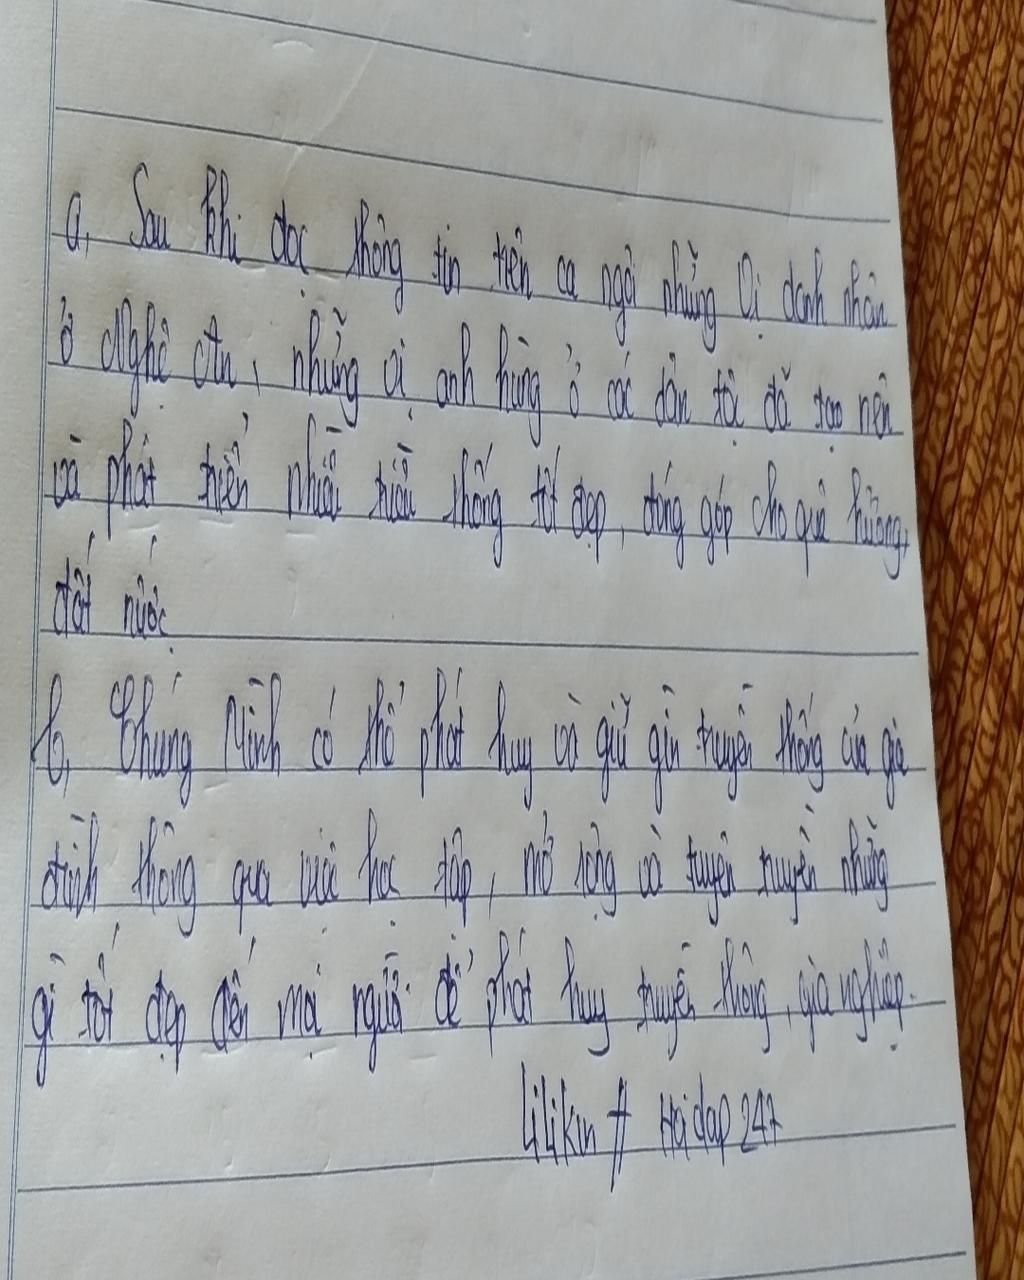 a, Sau khi đọc thông tin trên ca ngợi những vị danh nhân
ở Nghệ An, những vị anh hùng ở các dân tộc đã tạo nên
và phát triển nhiều truyền thống tốt đẹp, đóng góp cho quê hương,
đất nước
b, Chúng Mình có thể phát huy và giữ gìn truyền thống của gia
đình thông qua việc học tập, mở rộng và tuyên truyền những
gì tốt đẹp đến mọi người để phát huy truyền thông, gia nghiệp.
lilikin # Hoidap247